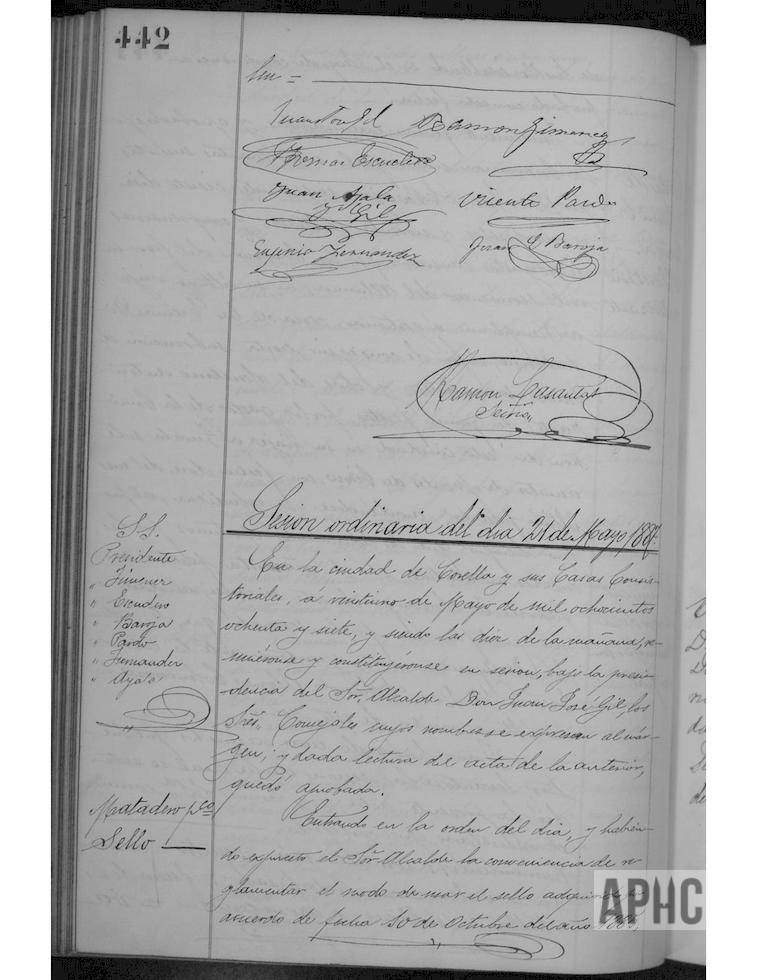 442
Juan José Gil Ramon Jimenez
Thomas Escudero
Juan Ayala
y Gil
Vicente Pardo
Eugenio Fernandez
Juan G Baroja
Ramon
Sesion ordinaria del dia 21 de Mayo 1887.
S.S.
Presidente
" Jimenez
" Escudero
" Baroja
" Pardo
" Fernandez
" Ayala
"
En la ciudad de Corella y sus Casas Consis-
toriales, á veintiuno de Mayo de mil ochocientos
ochenta y siete, y siendo las diez de la mañana, re-
uniéronse y constituyéronse en sesion, bajo la presi-
dencia del Sor. Alcalde Don Juan José Gil, los
Sres. Concejales cuyos nombres se expresan al már-
gen; y dada lectura del acta de la anterior,
quedó aprobada.
Matadero pco
Sello
Entrando en la orden del dia, y habien-
do expuesto el Sor. Alcalde la conveniencia de re-
glamentar el modo de usar el sello adquirido
acuerdo de fecha 10 de Octubre del año 1886,
APHC